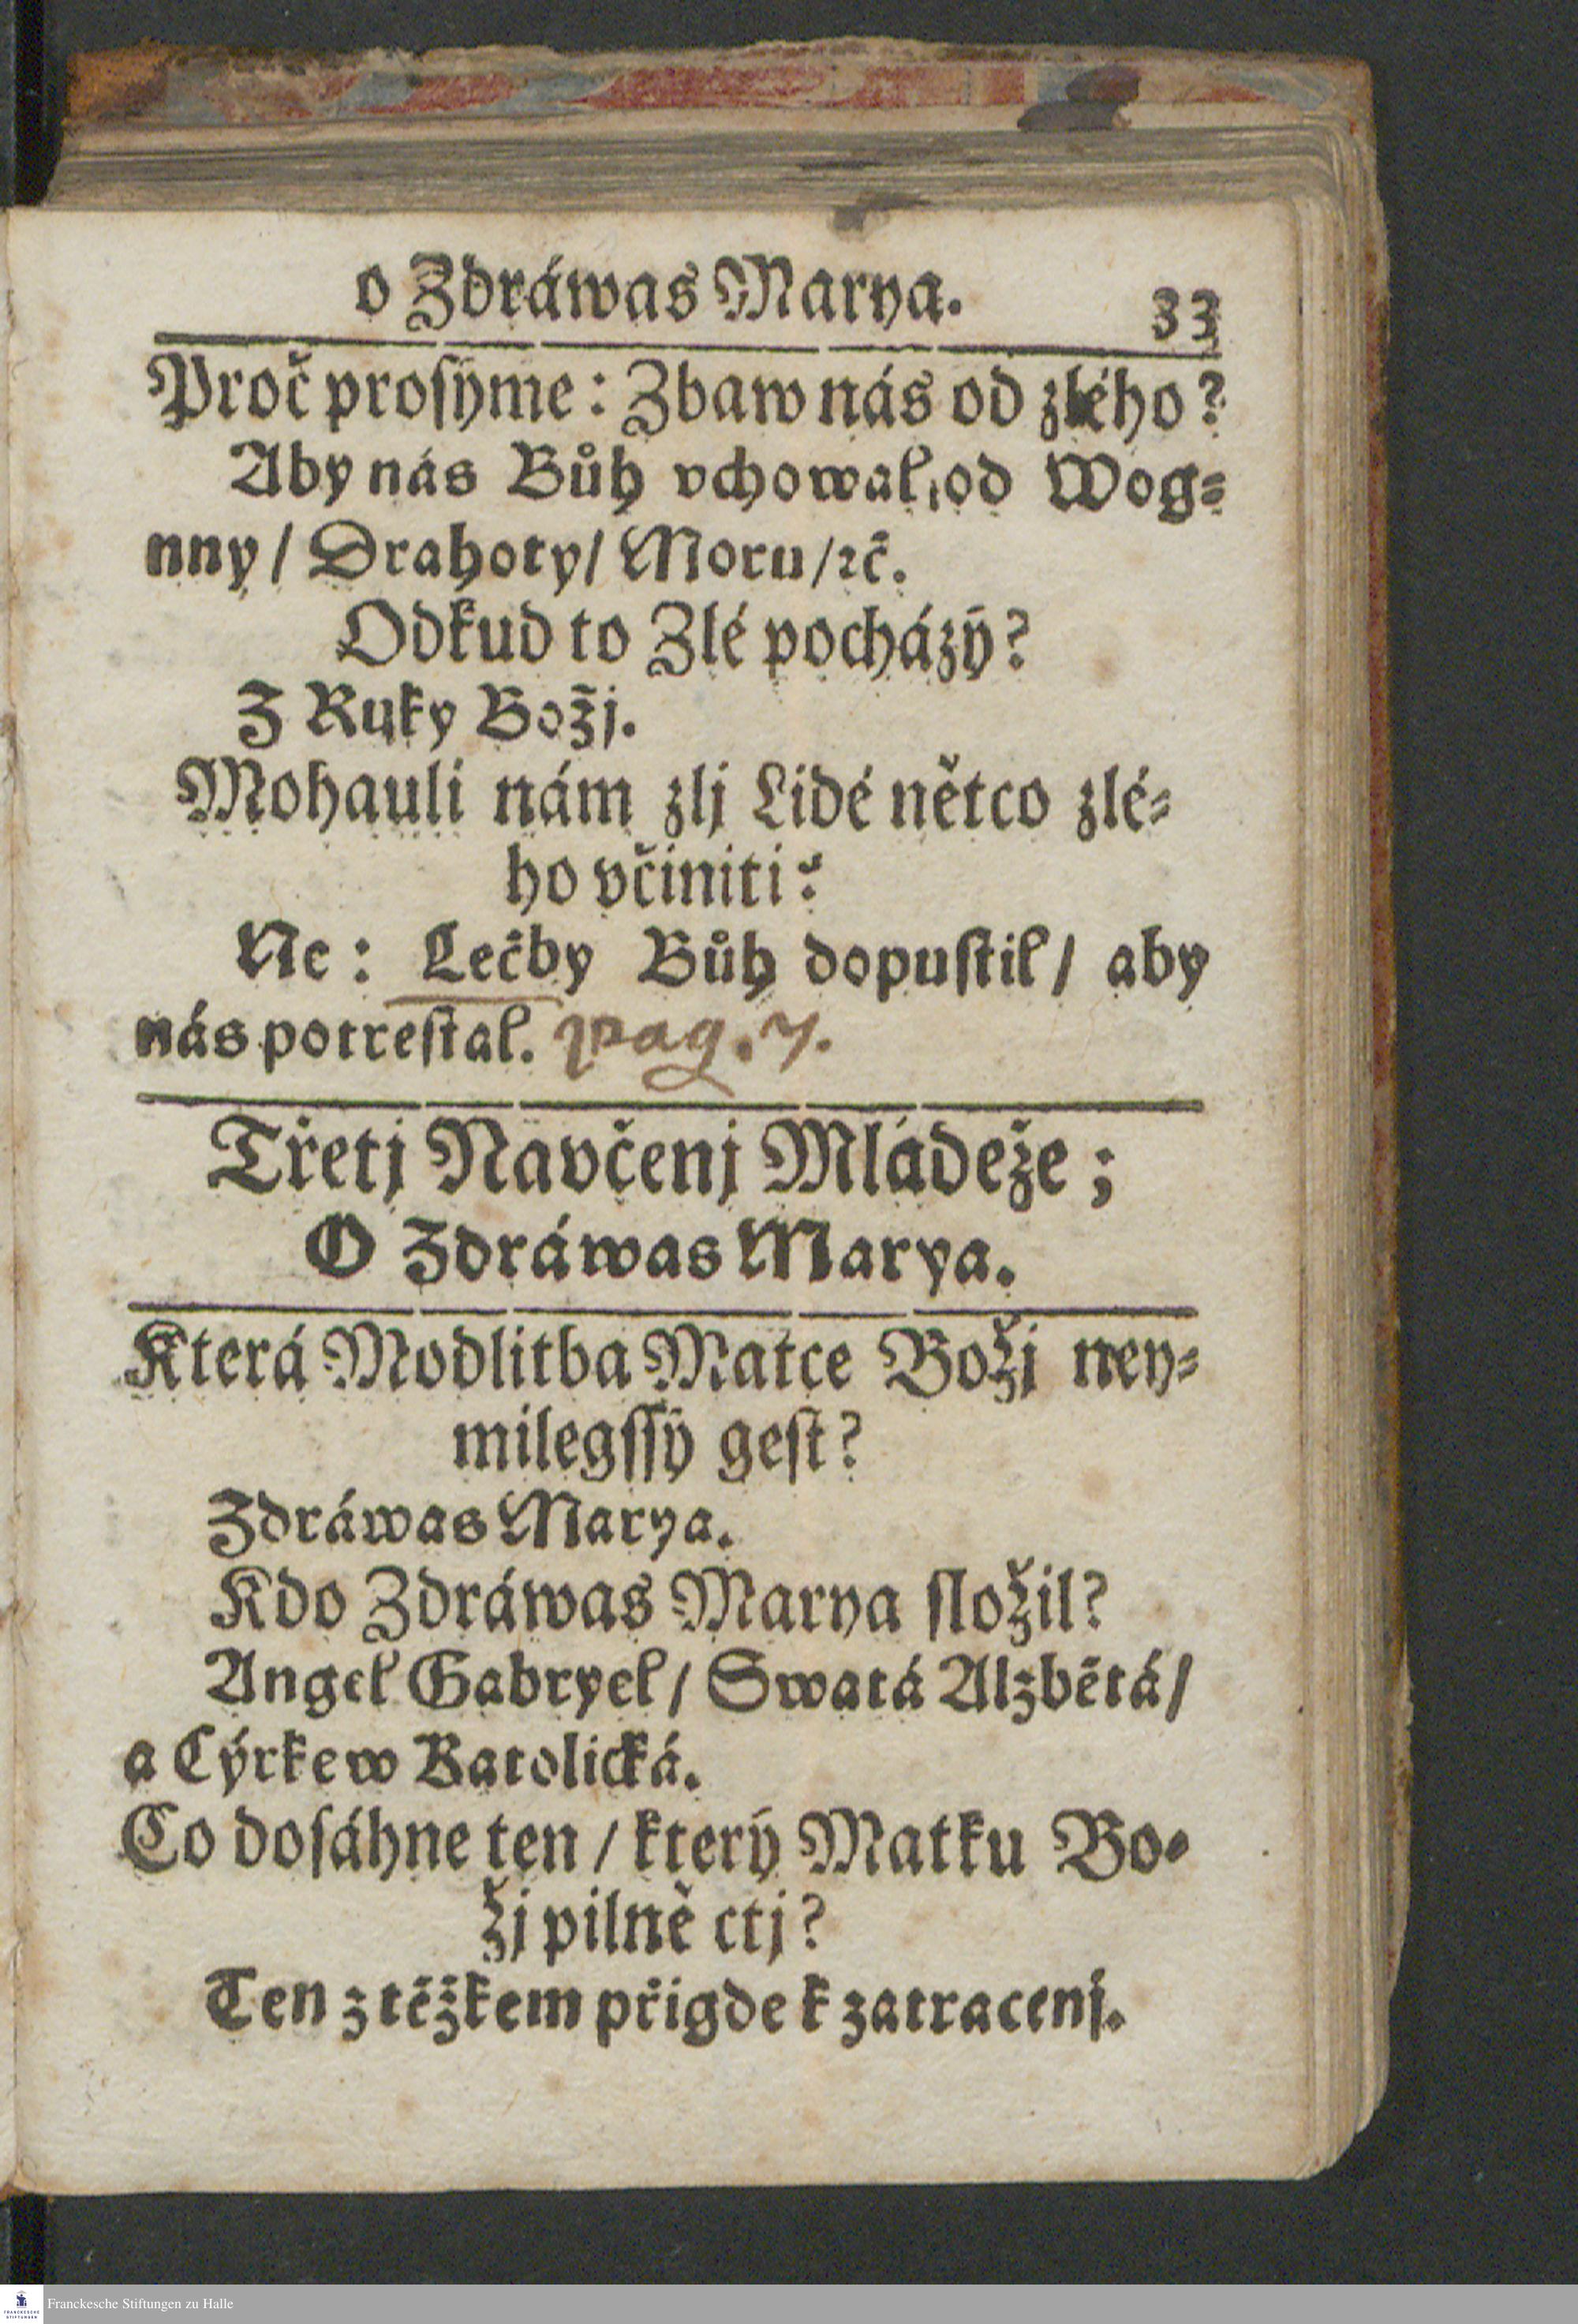 o Zdráwas Marya. 33
Proč proſyme: Zbaw nás od zlého?
Aby nás Bůh vchowal, od Wog⸗
nny / Drahoty / Moru / ꝛč.
Odkud to Zlé pocházý?
Z Ruky Božj.
Mohauli nám zlj Lidé nětco zlé⸗
ho včiniti?
Ne: Lečby Bůh dopuſtil / aby
nás potreſtal. pag. 7.
Třetj Navčenj Mládeže;
O Zdráwas Marya.
Která Modlitba Matce Božj ney⸗
milegſſý geſt?
Zdráwas Marya.
Kdo Zdráwas Marya ſložil?
Angel Gabryel / Swatá Alzbětá /
a Cýrkew Katolická.
Co doſáhne ten / který Matku Bo⸗
žj pilně ctj?
Ten z těžkem přigde k zatracenj.
Franckesche Stiftungen zu Halle